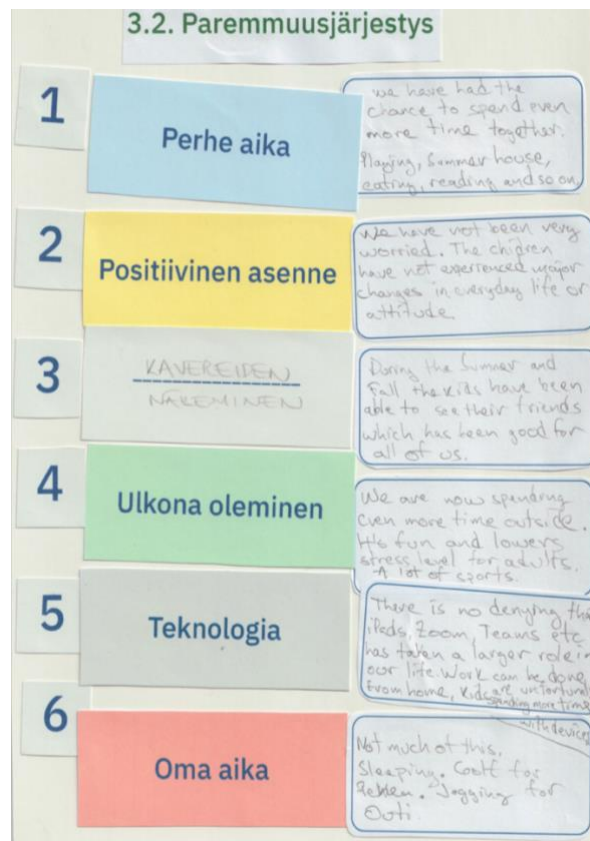 3.2. Paremmuusjärjestys
1
Perhe aika
we have had the
chance to spend even
more time together.
Playing, Summer house,
eating, reading and so on
2
Positiivinen asenne
We have not been very
worried. The chidren
have not experienced major
changes in everyday life or
attitude.
3
KAVEREIDEN
NÄKEMINEN
During the Summer and
Fall the kids have been
able to see their friends
which has been good for
all of us.
4
Ulkona oleminen
We are now spending
even more time outside.
It's fun and lowers
stress level for adults.
- A lot of sports.
5
Teknologia
There is no denying tha
iPads, Zoom, Teams etc
has taken a larger role in
our life. Work can be done
from home, Kids are unfortunat
spending more time
with devices
6
Oma aika
Not much of this.
Sleeping. Golf for
Jogging for
Outi.